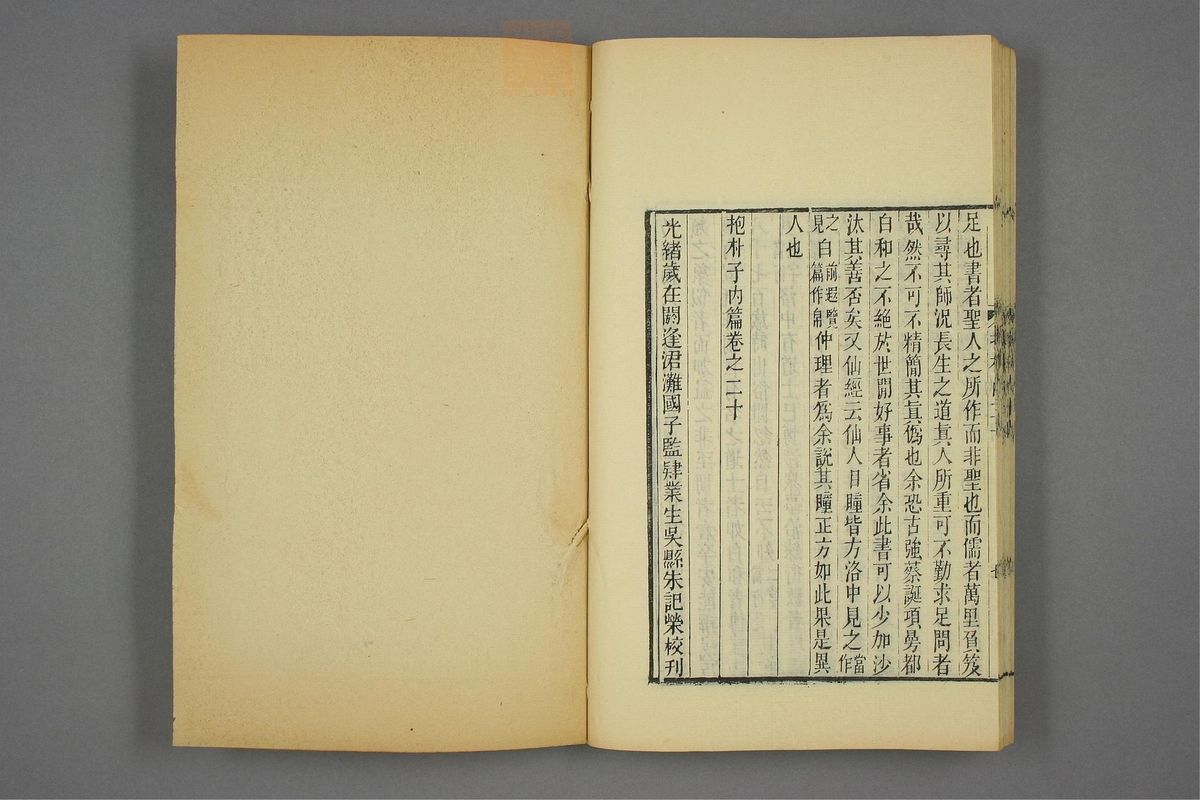 足也書者聖人之所作而非聖也而儒者萬里負笈
以尋其師況長生之道眞人所重可不勤求足問者
哉然不可不精簡其眞僞也余恐古強蔡誕項曼都
白和之不絕於世閒好事者省余此書可以少加沙
汰其善否矣又仙經云仙人目瞳皆方洛中見之當作
之見白前遐覽篇作帛仲理者爲余說其瞳正方如此果是異
人也
抱朴子內篇卷之二十
光緒歲在閼逢涒灘國子監肄業生吳縣朱記榮校刊